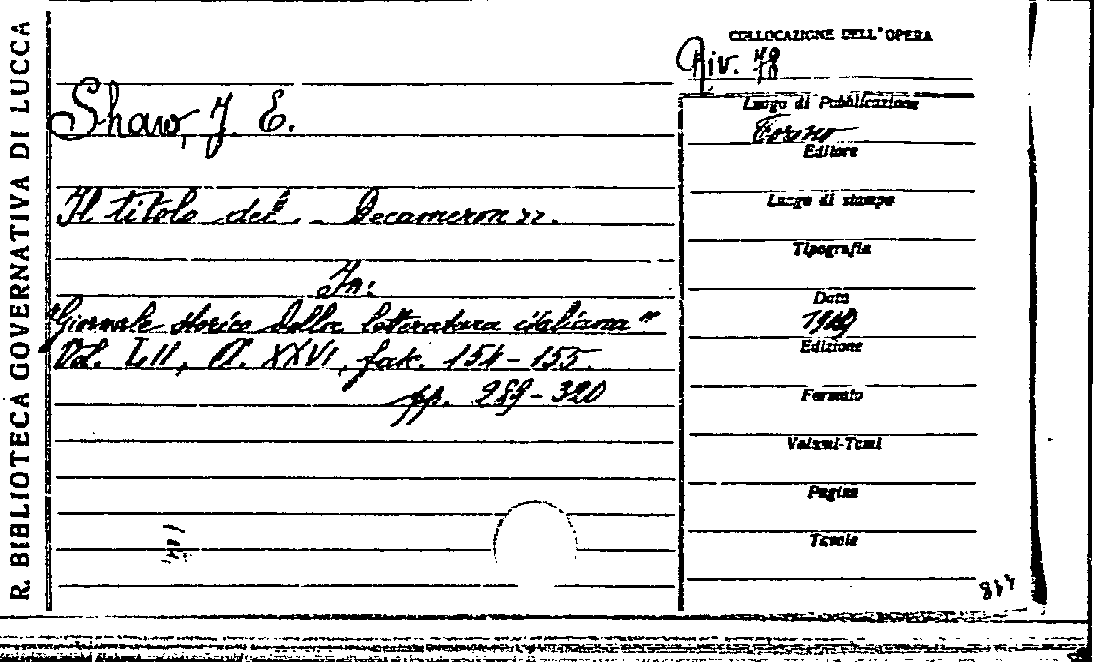 R. BIBLIOTECA GOVERNATIVA DI LUCCA
Shaw, J. E.
Il titolo del "Decameron".
In:
"Giornale storico della letteratura italiana"
Vol. LII, A. XXVI, fasc. 154-155.
pp. 289-320
COLLOCAZIONE DELL'OPERA
Riv. 78
Luogo di Pubblicazione
Torino
Editore
Luogo di stampa
Tipografia
Data
Edizione
Formato
Volumi-Tomi
Pagine
Tavole